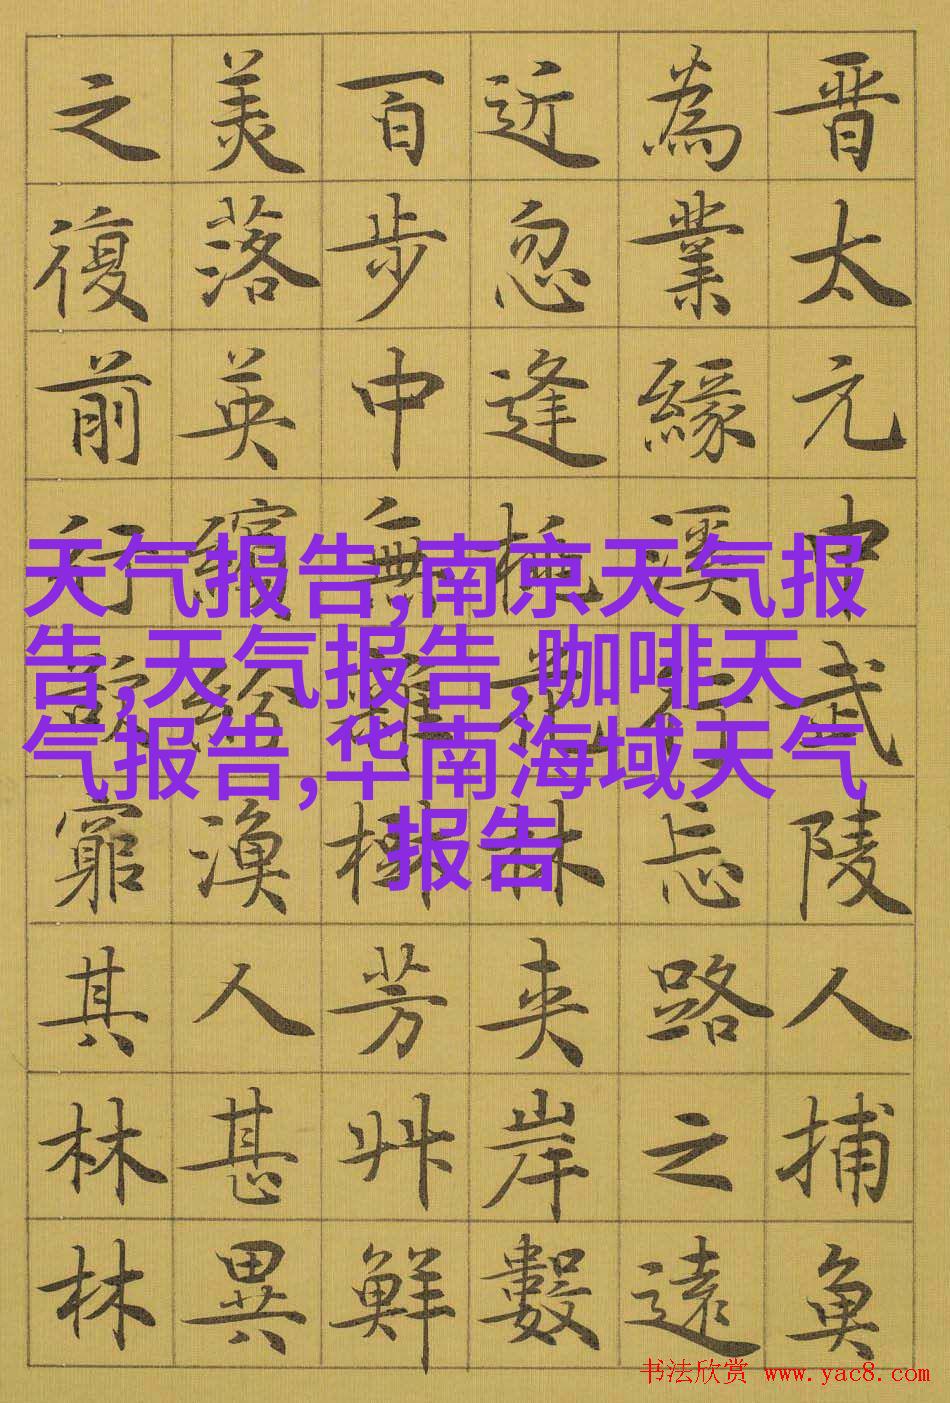 晋太元中武陵人捕魚
為業緣溪行忘路之遠
近忽逢桃花林夾岸數
百步中無雜樹芳艸鮮
美落英繽紛漁人甚異
之復前行欲窮其林林
天气报告,南京天气报
告,天气报告,咖啡天
气报告,华南海域天气
报告
书法欣赏 www.yac8.com